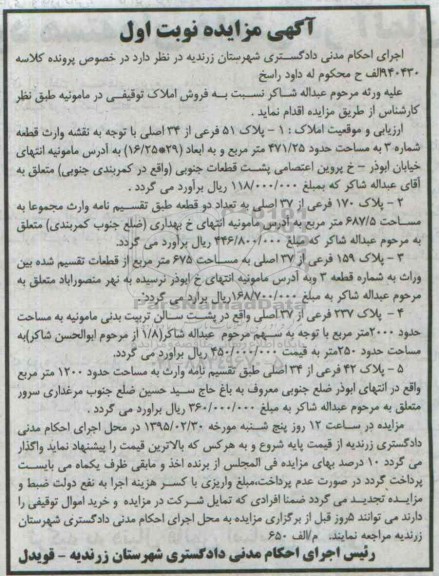 آگهی مزایده نوبت اول
اجرای احکام مدنی دادگستری شهرستان زرندیه در نظر دارد در خصوص پرونده کلاسه
۹۴۰۴۳۰الف ح محکوم له داود راسخ
علیه ورثه مرحوم عبداله شاکر نسبت به فروش املاک توقیفی در مامونیه طبق نظر
کارشناس از طریق مزایده اقدام نماید .
ارزیابی و موقعیت املاک : ۱ - پلاک ۵۱ فرعی از ۳۴ اصلی با توجه به نقشه وارث قطعه
شماره ۳ به مساحت حدود ۴۷۱/۲۵ متر مربع و به ابعاد (۲۹*۱۶/۲۵) به آدرس مامونیه انتهای
خیابان ابوذر – خ پروین اعتصامی پشت قطعات جنوبی (واقع در کمربندی جنوبی) متعلق به
آقای عبداله شاکر که بمبلغ ۱۱۸/۰۰۰/۰۰۰ ریال برآورد می گردد .
۲ - پلاک ۱۷۰ فرعی از ۳۷ اصلی به تعداد دو قطعه طبق تقسیم نامه وارث مجموعا به
مساحت ۶۸۷/۵ متر مربع به آدرس مامونیه انتهای خ بهداری (ضلع جنوب کمربندی) متعلق
به مرحوم عبداله شاکر که مبلغ ۴۴۶/۸۰۰/۰۰۰ ریال برآورد می گردد.
۳ - پلاک ۱۵۹ فرعی از ۳۷ اصلی به مساحت ۶۷۵ متر مربع از قطعات تقسیم شده بین
وراث به شماره قطعه ۳ وبه آدرس مامونیه انتهای خ ابوذر نرسیده به نهر منصوراباد متعلق به
مرحوم عبداله شاکر به مبلغ ۱۶۸/۷۰۰/۰۰۰ریال برارد می گردد.
۴ - پلاک ۲۳۷ فرعی از ۳۷ اصلی واقع در پشت سالن تربیت بدنی مامونیه به مساحت
حدود ۲۰۰۰متر مربع با توجه به سهم مرحوم عبداله شاکر(۱/۸ از مرحوم ابوالحسن شاکر)به
مساحت حدود ۲۵۰متر به قیمت ۴۵۰/۰۰۰/۰۰۰ ریال براورد می گردد.
۵ - پلاک ۴۲ فرعی از ۳۴ اصلی طبق تقسیم نامه وارث به مساحت حدود ۱۲۰۰ متر مربع
واقع در انتهای ابوذر ضلع جنوبی معروف به باغ حاج سید حسین ضلع جنوب مرغداری سرور
متعلق به مرحوم عبداله شاکر به مبلغ ۳۶۰/۰۰۰/۰۰۰ ریال براورد می گردد .
مزایده در ساعت ۱۲ روز پنج شنبه مورخه ۱۳۹۵/۰۲/۳۰ در محل اجرای احکام مدنی
دادگستری زرندیه از قیمت پایه شروع و به هرکس که بالاترین قیمت را پیشنهاد نماید واگذار
می گردد ۱۰ درصد بهای مزایده فی المجلس از برنده اخذ و مابقی ظرف یکماه می بایست
پرداخت گردد در صورت عدم پرداخت،مبلغ واریزی با کسر هزینه اجرا به نفع دولت ضبط و
مزایده تجدید می گردد ضمنا افرادی که تمایل شرکت در مزایده و خرید اموال توقیفی را
دارند می توانند ۵روز قبل از برگزاری مزایده به محل اجرای احکام مدنی دادگستری شهرستان
زرندیه مراجعه نمایند. م/الف ۶۵۰
رئیس اجرای احکام مدنی دادگستری شهرستان زرندیه – فویدل